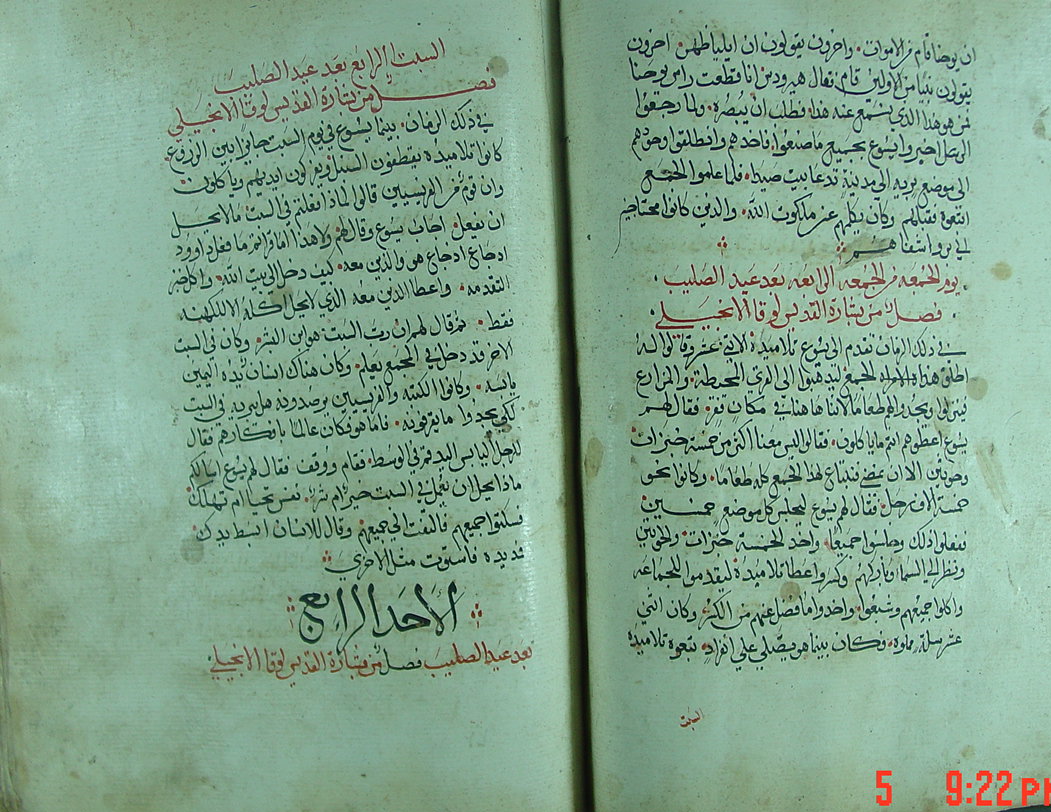 ان يوحنا قام من الاموات واخرون يقولون ان ايليا ظهر اخرون
يقولون نبيا من الاولين قام فقال هيرودس انا قطعت راس يوحنا
فمن هو هذا الذي يستمع عنه هذا فطلب ان يبصره ولما رجعوا
الرسل اخبروا يسوع بجميع ما صنعوا فاخدهم وانطلق وحدهم
الى موضع بريه الى مدينة تدعا بيت صيدا فلما علموا الجمع
اتبعوه فقبلهم وكان يكلمهم عن ملكوت الله والدين كانوا محتاجين
الي برو اشفاهم
يوم الجمعه من الجمعه الرابعه بعد عيد الصليب
فصل من بشارة القديس لوقا الانجيلي
في ذلك الزمان تقدم الى يسوع تلاميذه الاثني عشر وقالوا له
اطلق هذا الجمع ليدهبوا الى القرى المحيطه والمزارع
فينزلوا ويجدوا لهم طعاما لاننا هاهنا في مكان قفر فقال لهم
يسوع اعطوهم انتم ما ياكلون فقالوا ليس معنا اكثر من خمسة خبزات
وحوتين الا ان نمضي فنبتاع لهذا الجمع كله طعاما وكانوا نحو
خمسة الاف رجل فقال لهم يسوع ليجلس كل موضع خمسين
ففعلوا ذلك وجلسوا جميعا واخد الخمسة خبزات والحوتين
ونظر الى السما وباركهم وكسر واعطا تلاميده ليقدموا للجماعه
واكلوا جميعهم وشبعوا واخدوا ما فضل عنهم من الكسر وكان اثني
عشر سلة مملوه وكان بينما هو يصلي علي انفراد تبعوه تلاميده
السبت
السبت الرابع بعد عيد الصليب
فصل من بشارة القديس لوقا الانجيلي
في ذلك الزمان بينما يسوع في يوم السبت جايزا بين الزروع
كانوا تلاميده يقطفون السنبل ويفركون ايديهم وياكلون
وان قوم من الفريسيين قالوا لماذا تفعلتم في السبت ما لا يحل
ان تفعل اجاب يسوع وقال لهم ولا هدا اما قراتم ما فعل داوود
اد جاع هو والذين معه كيف دخل الى بيت الله واكل خبز
التقدمه واعطا الذين معه الذي لا يحل اكله الا للكهنه
فقط ثم قال لهم ان رب السبت هو ابن البشر وكان في السبت
الاخر قد دخل في المجمع يعلم وكان هناك انسان يده اليمين
يابسه وكانوا الكتبه والفريسيين يرصدونه هل يبريه في السبت
لكي يجدوا ما يقرفونه فاما هو فكان عالما بافكارهم فقال
للرجل اليابس اليد قم في الوسط فقام ووقف فقال لهم يسوع اسالكم
ماذا يحل ان يعمل في السبت خير ام شر نفس تحيا ام تهلك
فسكتوا جميعهم فالتفت الى جميعهم وقال للانسان ابسط يدك
فمد يده فاستوت مثل الاخرى
الاحد الرابع
بعد عيد الصليب فصل من بشارة القديس لوقا الانجيلي
5 9:22 PM